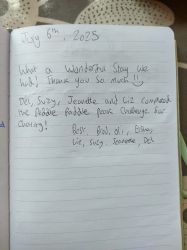 July 6th, 2025
What a Wonderful Stay we
had! Thank you so much
Del, Suzy, Jeanette and Liz completed
the Peddle Paddle Peak Challenge for
charity!
Best, Bod, Oli,
Liz, Suzy, Jeanette, Del